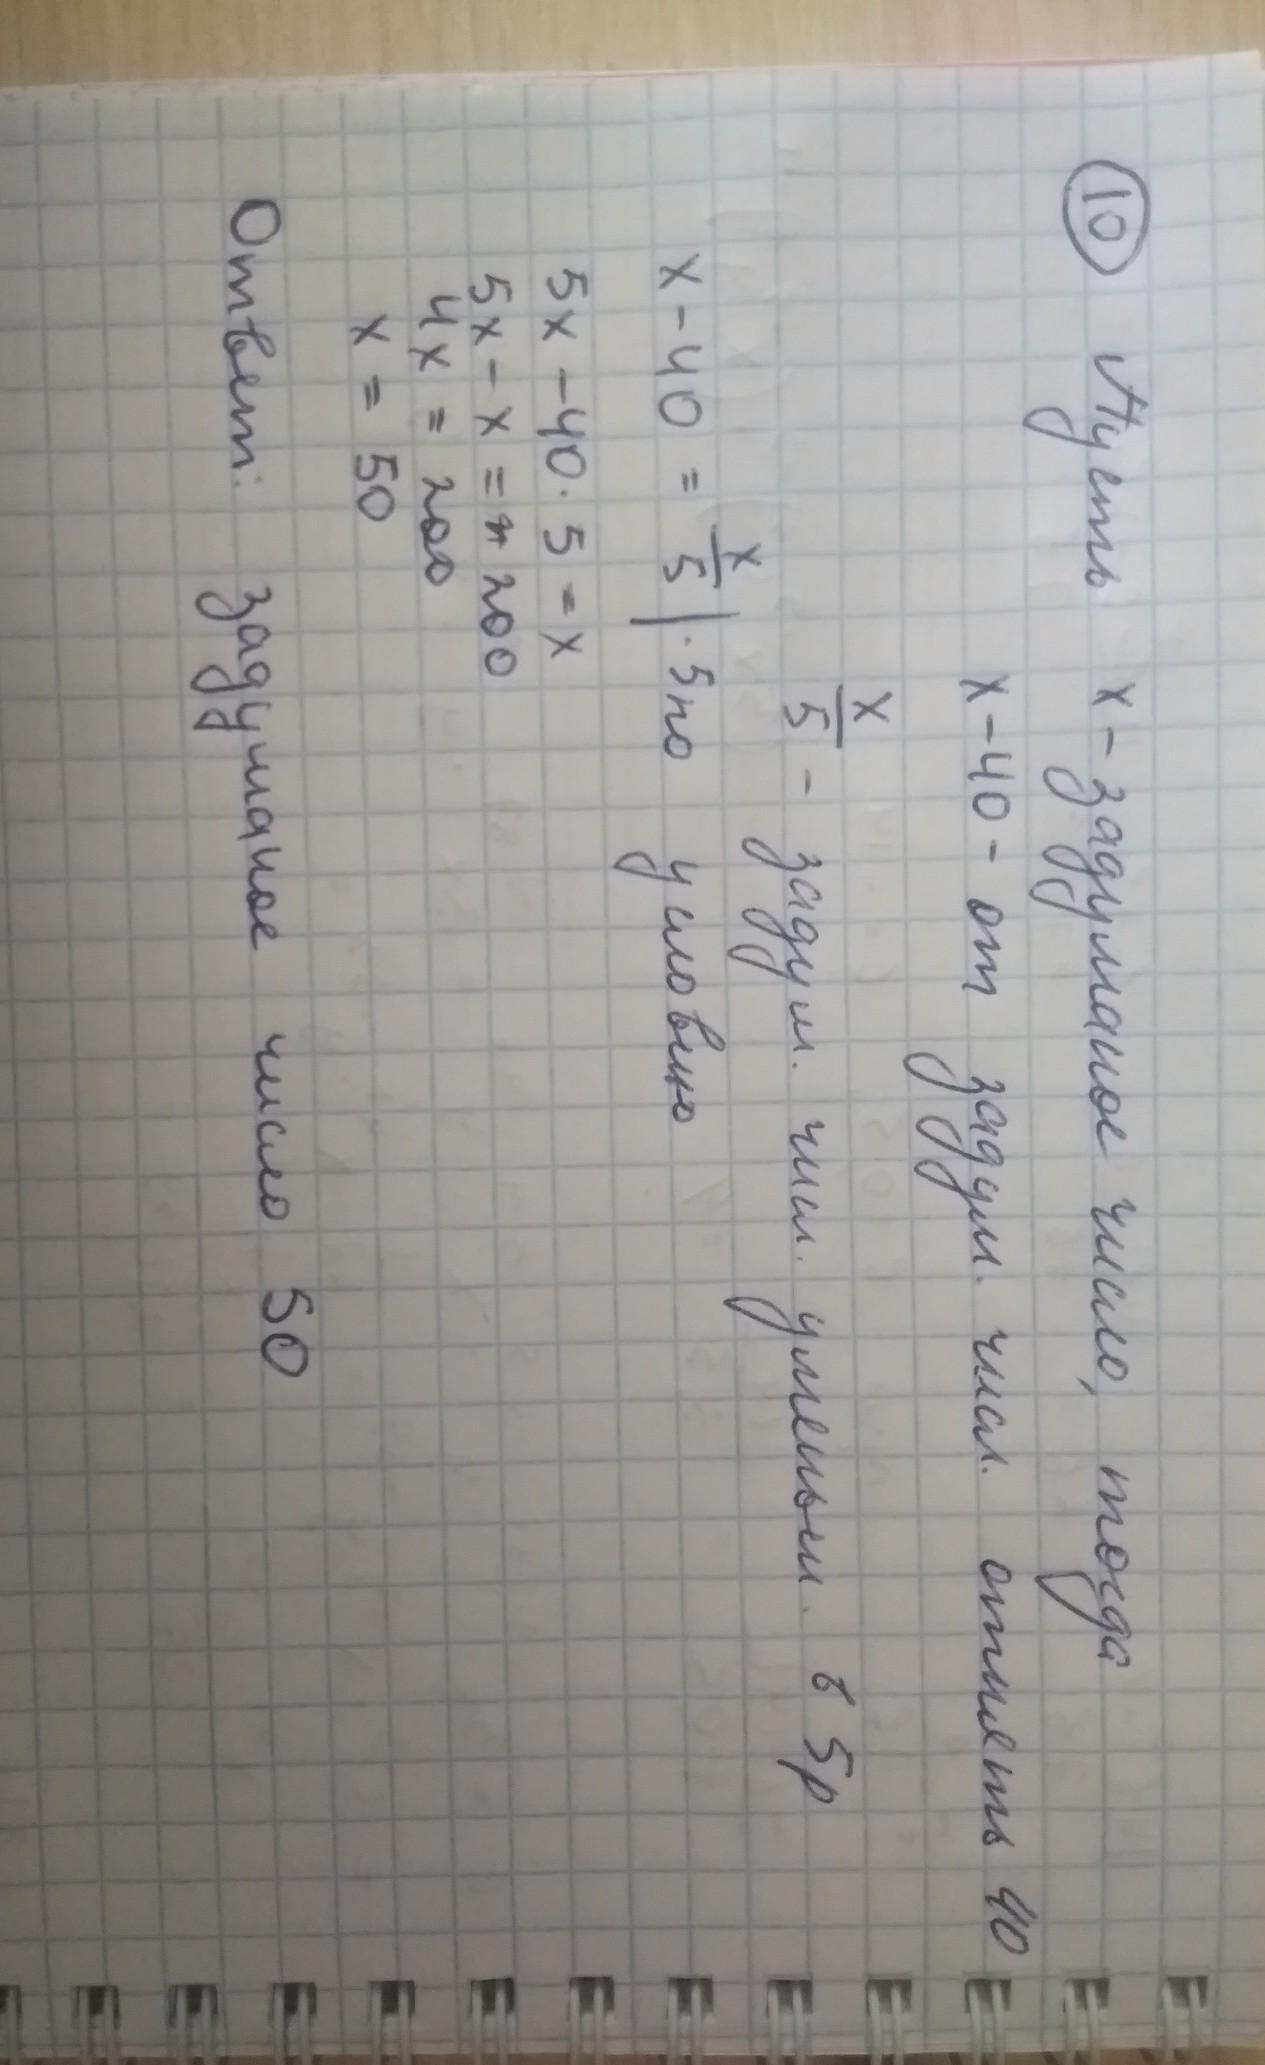 10 Пусть x - задуманое число, тогда
x - 40 - от задум. числ. отнять 40
x/5 - задум. числ. уменьш. в 5р
x - 40 = x/5 | · 5 по условию
5x - 40 · 5 = x
5x - x = 200
4x = 200
x = 50
Ответ: задуманое число 50